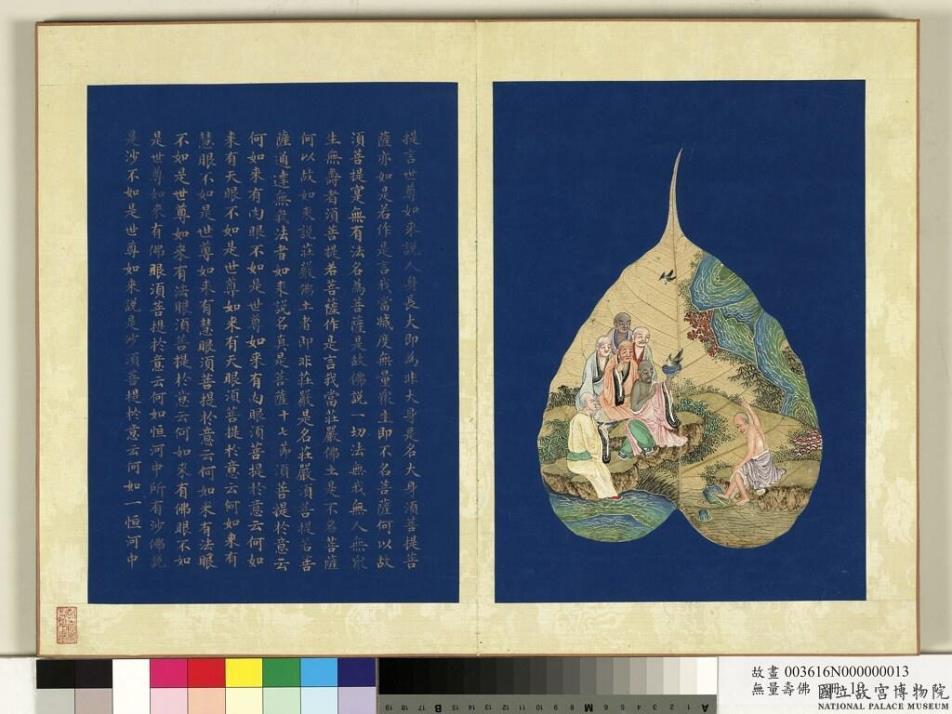 提言世尊如来說人身長大即為非大身是名大身須菩提菩
薩亦如是若作是言我當滅度無量眾生即不名菩薩何以故
須菩提寔無有法名為菩薩是故佛說一切法無我無人無眾
生無壽者須菩提若菩薩作是言我當莊嚴佛土是不名菩薩
何以故如来說莊嚴佛土者即非莊嚴是名莊嚴須菩提若菩
薩通達無我法者如来說名真是菩薩十七第須菩提於意云
何如来有肉眼不如是世尊如来有肉眼須菩提於意云何如
来有天眼不如是世尊如来有天眼須菩提於意云何如来有
慧眼不如是世尊如来有慧眼須菩提於意云何如来有法眼
不如是世尊如来有法眼須菩提於意云何如来有佛眼不如
是世尊如来有佛眼須菩提於意云何如恒河中所有沙佛說
是沙不如是世尊如来說是沙須菩提於意云何如一恒河中
故畫 003616N000000013
無量壽佛 冊 13
國立故宮博物院
NATIONAL PALACE MUSEUM